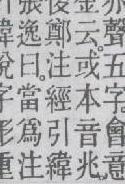 亦聲五字會意
云。或本音兆
後鄭注經引緯
張逸曰。當爲注
緯說字形重